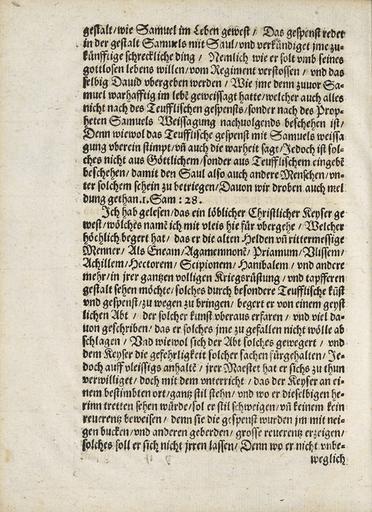 gestalt/wie Samuel im Leben gewest / Das gespenst redet
in der gestalt Samuels mit Saul/vnd verkündiget jme zu-
künfftige schreckliche ding / Nemlich wie er solt vmb seines
gottlosen lebens willen/vom Regiment verstossen / vnd das
selbig Dauid vbergeben werden / Wie jme denn zuuor Sa-
muel warhafftig im lebē geweissagt hatte/welcher auch alles
nicht nach des Teufflischen gespensts/sonder nach des Prop-
heten Samuels Weissagung nachuolgends beschehen ist/
Denn wiewol das Teufflische gespenst mit Samuels weissa
gung vberein stimpt/vñ auch die warheit sagt/Jedoch ist sol-
ches nicht aus Göttlichem/sonder aus Teufflischem eingebē
beschehen/damit den Saul also auch andere Menschen/vn-
ter solchem schein zu betriegen/Dauon wir droben auch mel
dung gethan.1.Sam : 28.
Ich hab gelesen/das ein löblicher Christlicher Keyser ge
west/wölches namē ich mit vleis hie für vbergehe / Welcher
höchlich begert hat / das er die alten Helden vñ rittermessige
Menner / Als Eneam/Agamemnonē/Priamum/Vlissem/
Achillem/Hectorem/Scipionem/Hanibalem/vnd andere
mehr/in jrer gantzen volligen Kriegsrüstung/vnd tapfferen
gestalt sehen möchte/solches durch besondere Teufflische küst
vnd gespenst/zu wegen zu bringen/begert er von einem geyst
lichen Abt / der solcher kunst vberaus erfaren / vnd viel da-
uon geschriben/das er solches jme zu gefallen nicht wölle ab
schlagen / Vnd wiewol sich der Abt solches gewegert / vnd
dem Keyser die gefehrligkeit solcher sachen fürgehalten/ Je-
doch auff vleissigs anhaltē / jrer Maestet hat er sichs zu thun
verwilliget/doch mit dem vnterricht / das der Keyser an ei-
nem bestimbten ort/gantz stil stehen / vnd wo er dieselbigen he-
rinn tretten sehen würde/sol er stil schweigen/vñ keinem kein
reuerentz beweisen / denn sie die gespenst wurden jm mit nei-
gen bucken/vnd anderen geberden / grosse reuerentz erzeigen/
solches soll er sich nicht jrren lassen/ Denn wo er nicht vnbe-
weglich